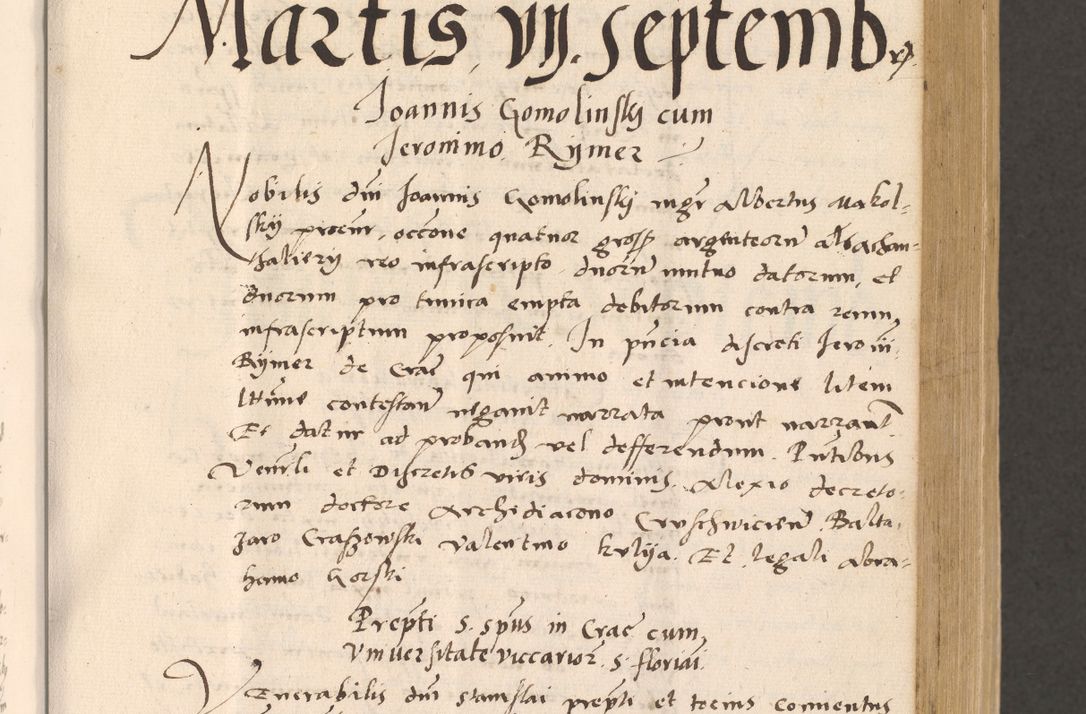 Martis vij. Septembr.
Joannis Gomolinskj cum
Jeronimo Rymer
Nobilis dni Joannis Gomolinskj mgr Albertus Makol-
skij procur. occone quatuor gross argenteoru
reo infrascripto, duoru mutuo datorum, et
duorum pro tunica empta debitorum contra reum,
infrascriptum proposuit. In pncia discreti Jeroni
Rymer de Crac qui animo et intencione litem
lttime contestan negauit narrata prout narrant
Et datur ad proband vel defferendum. Pntibus
Venerli et Discretis viris dominis Alexio decreto-
rum doctore Archidiacono Cruschwicien Balta-
zaro Craszowski Valentino kulija. Et legali Abra-
hamo Gorski
Prepti S. Spus in Crac cum,
Vniuersitate viccarior. S. floriai.
Venerabilis dni Stanislai prepti et tocius Conuentus